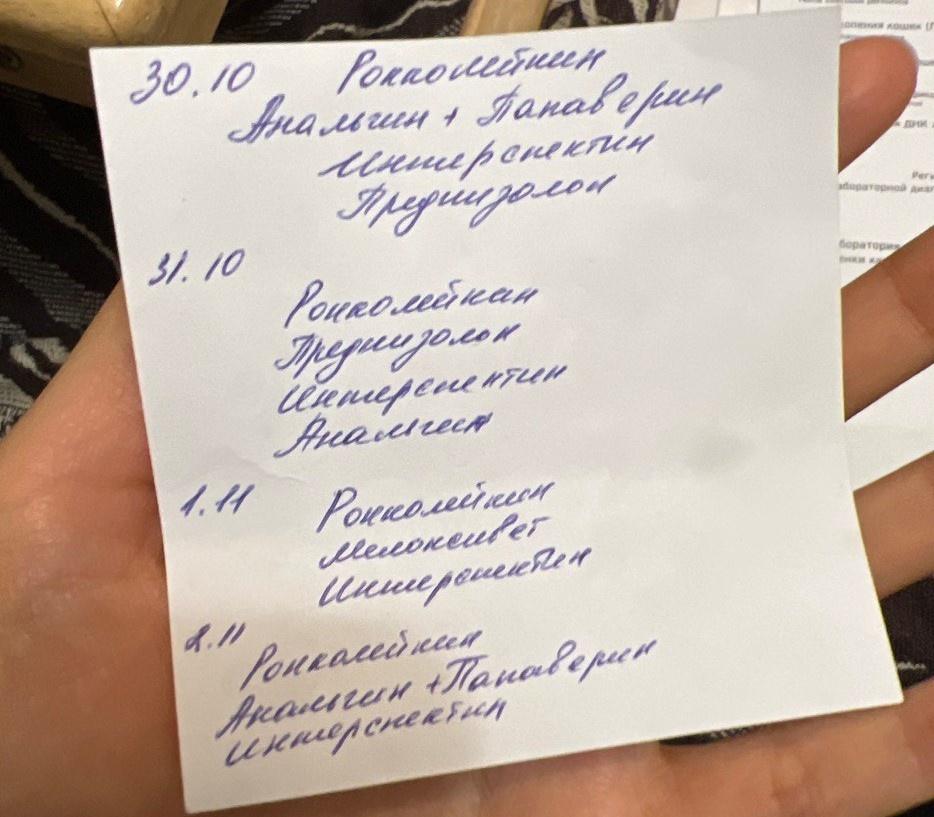 30.10 Ронколейкин
Анальгин + Папаверин
Интерспектин
Преднизолон
31.10
Ронколейкин
Преднизолон
Интерспектин
Анальгин
1.11 Ронколейкин
Мелоксивет
Интерспектин
2.11
Ронколейкин
Анальгин + Папаверин
Интерспектин
кошек (
ДНК
Реги
лабораторной диаг